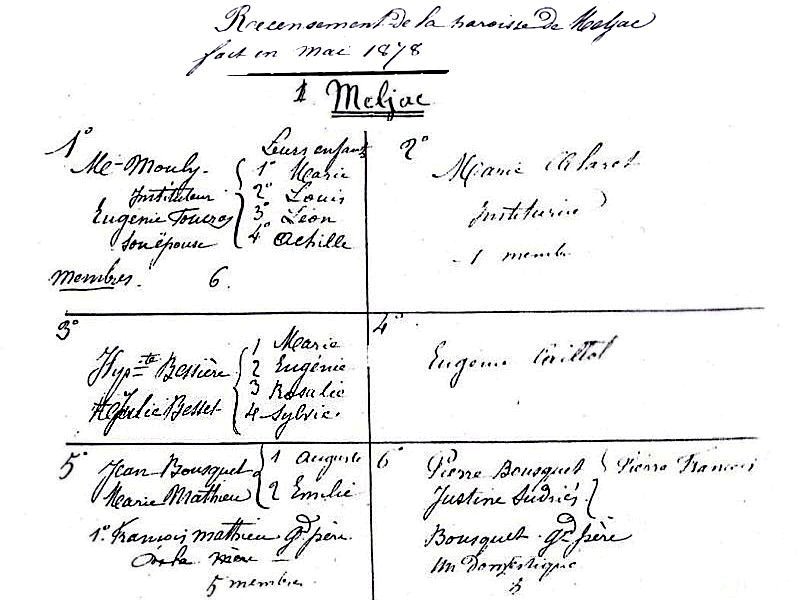 Recensement de la paroisse de Meljac
fait en mai 1878
1 Meljac
1º
Leurs enfants
Mr Mouly
Instituteur
Eugenie
son épouse
1º Marie
2º Louis
3º Léon
4º Achille
membres. 6.
2º
Marie
Institutrice
1 membre
3º
Hypte Bessière
Julie Besset
1 Marie
2 Eugénie
3 Rosalie
4 Sylvie
4º
Eugenie
5º
Jean Bousquet
Marie Mathieu
1 Auguste
2 Emilie
1º François mathieu gd père
mère
5 membres
6º
Pierre Bousquet
Justine Sudriés
Pierre François
Bousquet gd père
un Domestique